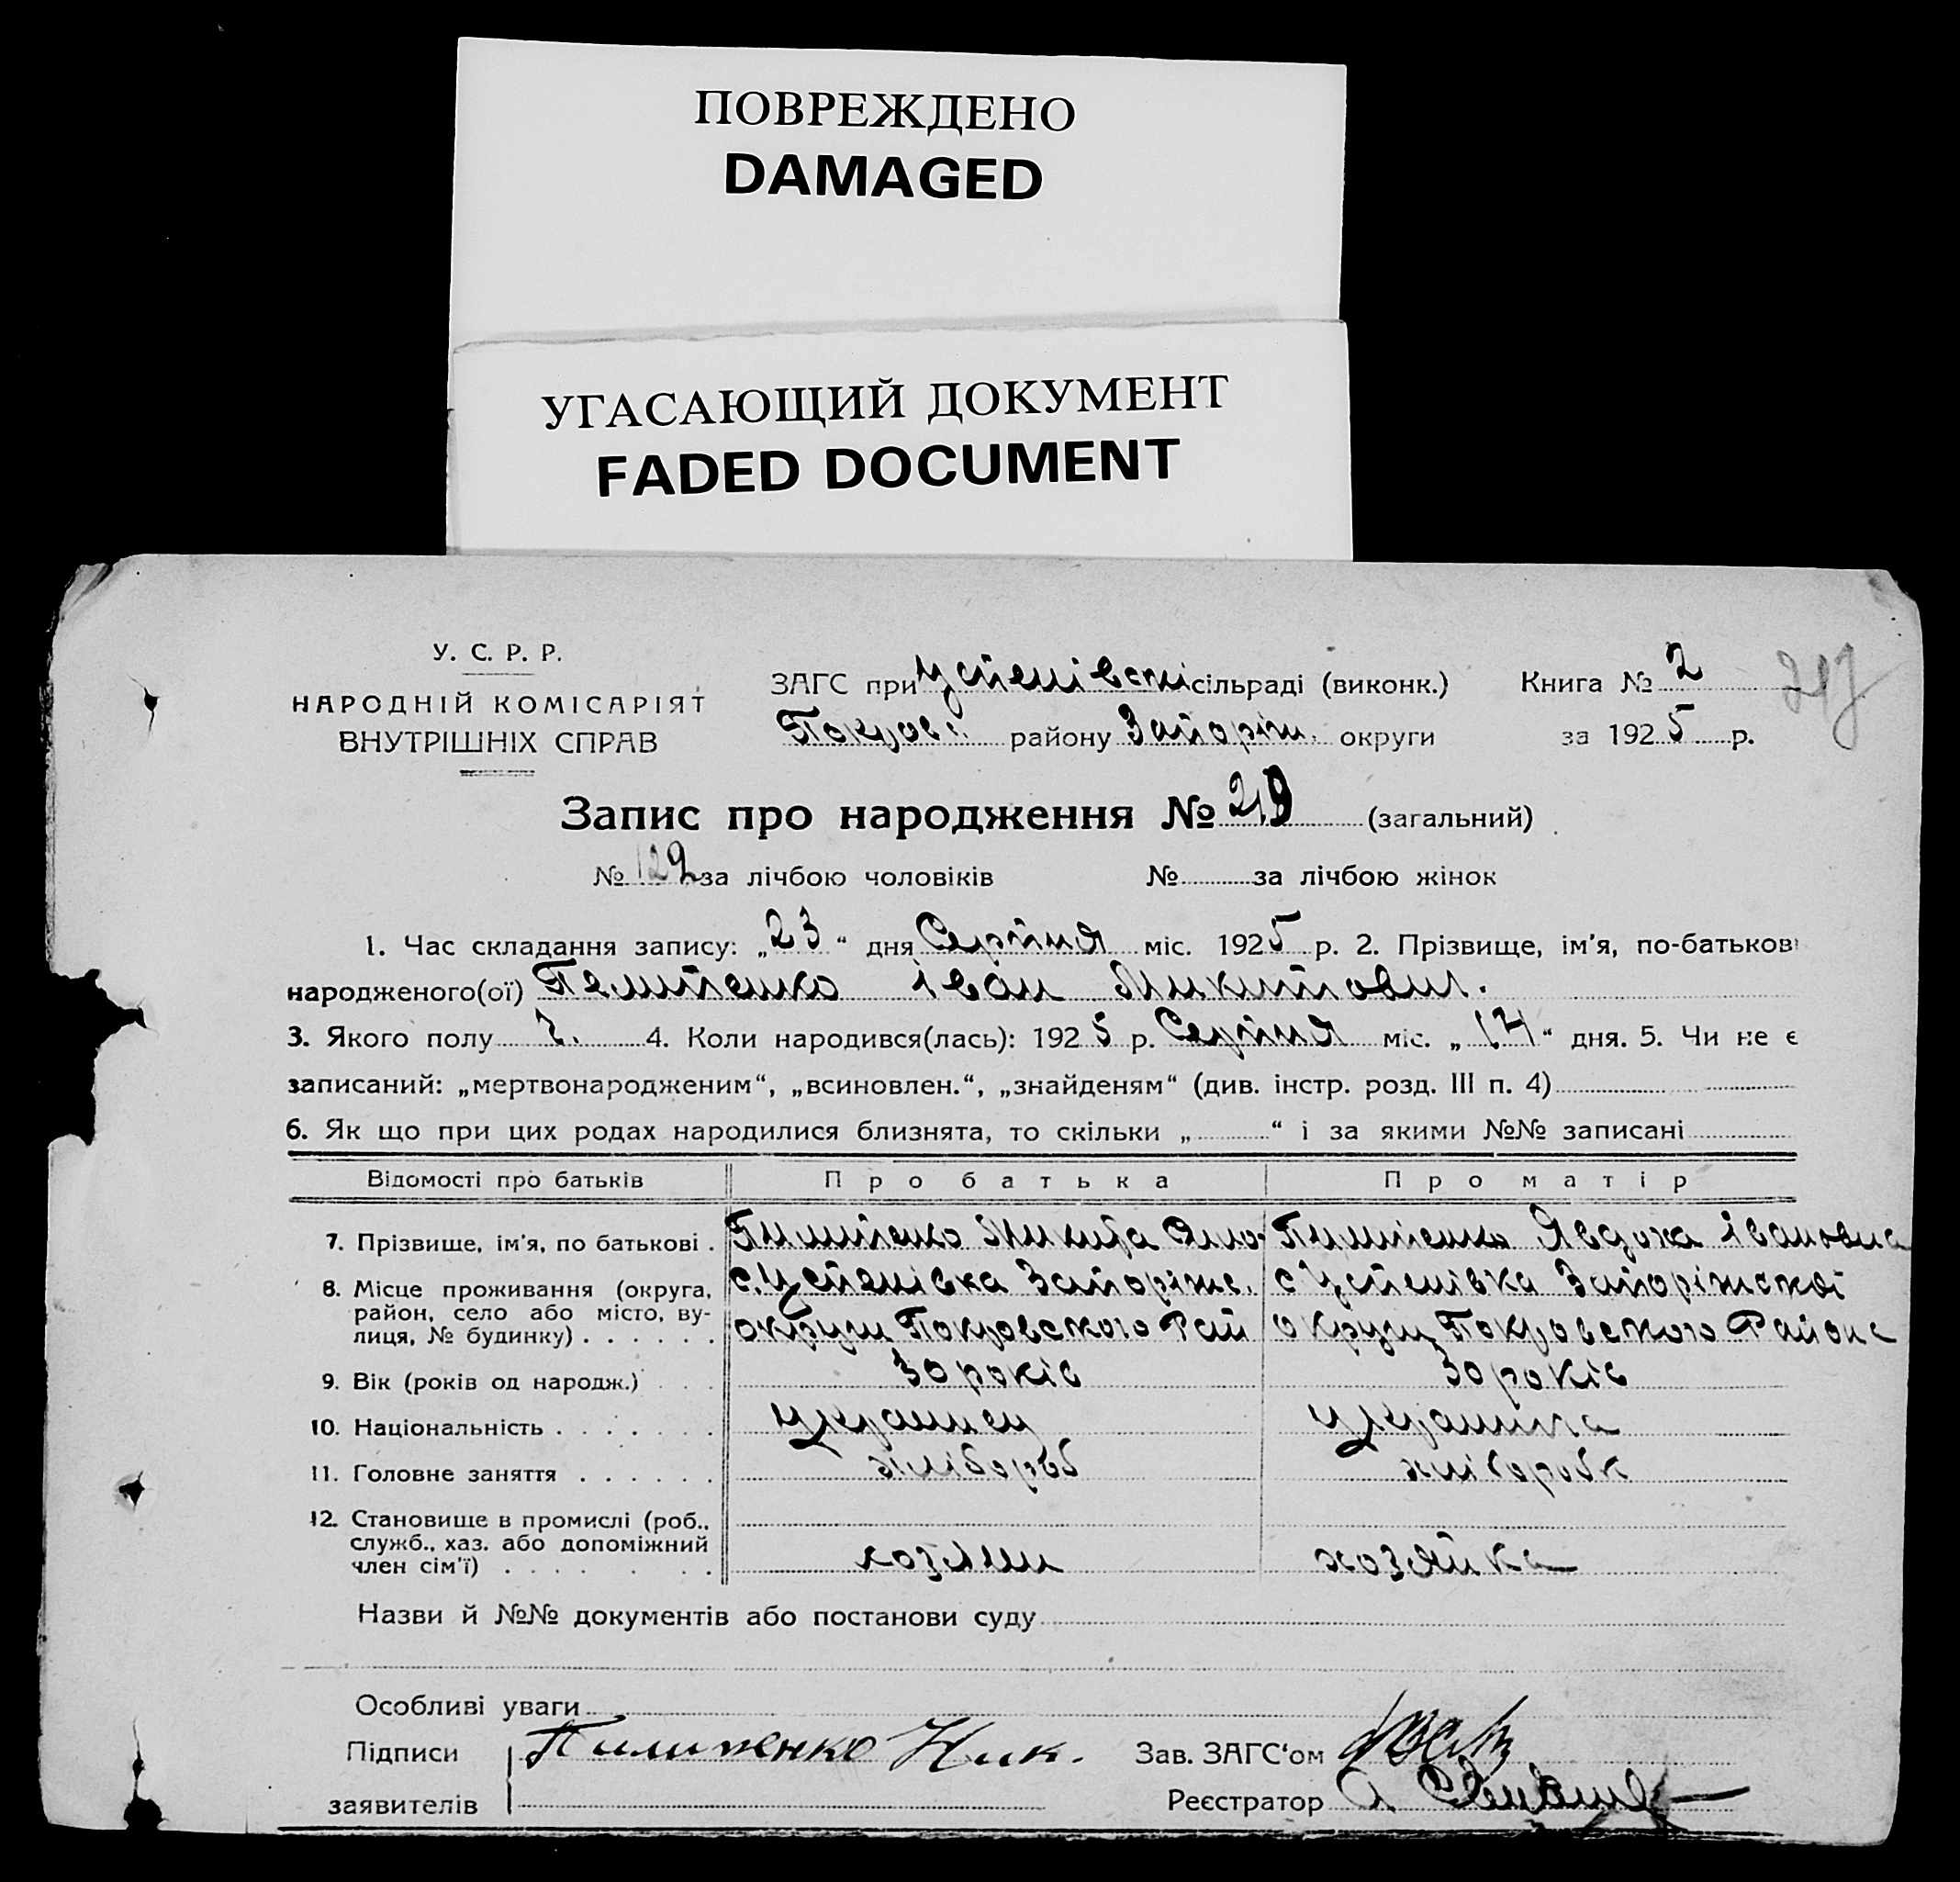 ПОВРЕЖДЕНО
DAMAGED
УГАСАЮЩИЙ ДОКУМЕНТ
FADED DOCUMENT
У. С. Р. Р.
НАРОДНІЙ КОМІСАРІЯТ
ВНУТРІШНІХ СПРАВ
ЗАГС при Успенівскі сільраді (виконк.) Книга № 2
Покров. району Запоріж. округи за 1925 р.
Запис про народження № 219 (загальний)
№ 122 за лічбою чоловіків № за лічбою жінок
1. Час складання запису: „23“ дня Серпня міс. 1925 р. 2. Прізвище, ім'я, по-батькові
народженого(ої) Пелипенко Іван Микитович.
3. Якого полу ч. 4. Коли народився(лась): 1925 р. Серпня міс. „17“ дня. 5. Чи не є
записаний: „мертвонародженим“, „всиновлен.“, „знайденям“ (див. інстр. розд. III п. 4)
6. Як що при цих родах народилися близнята, то скільки „ “ і за якими №№ записані
Відомості про батьків Про батька Про матір
7. Прізвище, ім'я, по батькові . Пилипенко Микита Пилипенко Явдоха Івановна
8. Місце проживання (округа, район, село або місто, вулиця, № будинку) . . . . . . с. Успенівка Запоріж. округи Покровського Рай с Успенівка Запоріжскої округи Покровського Района
9. Вік (років од народж.) . . . 30 років 30 років
10. Національність . . . . . . . украинец украинка
11. Головне заняття . . . . . . хлібороб хліборобк
12. Становище в промислі (роб., служб., хаз. або допоміжний член сім'ї) . . . . . . . хозяин хозяйка
Назви й №№ документів або постанови суду
Особливі уваги
Підписи Пилипенко Ник. Зав. ЗАГС'ом
заявителів Реєстратор